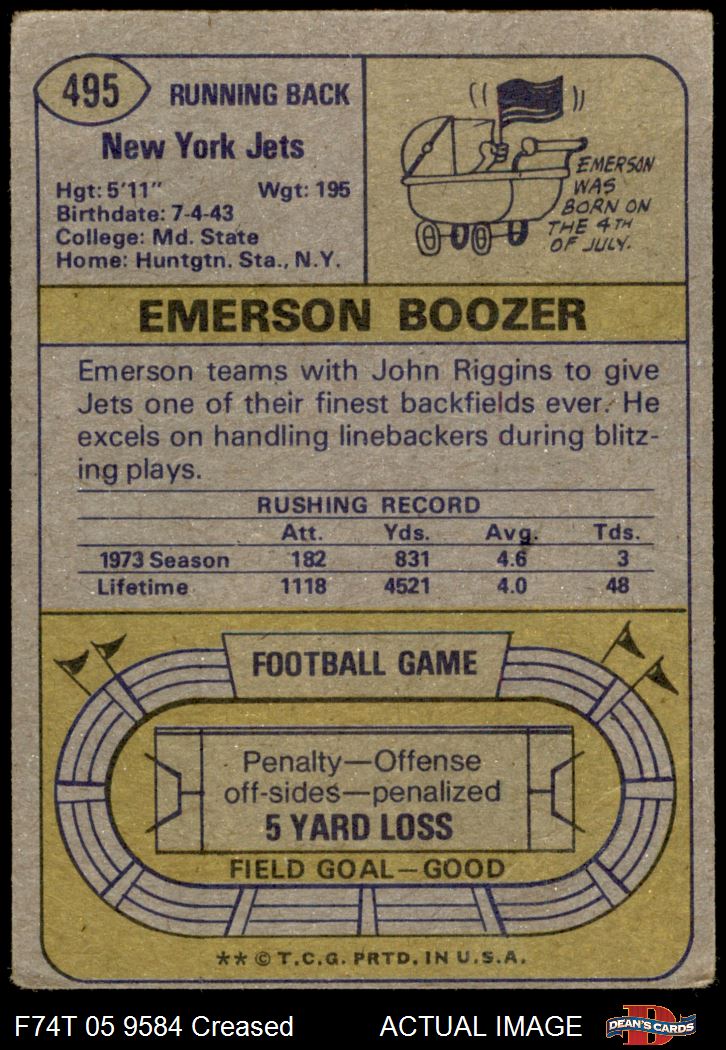 495
RUNNING BACK
New York Jets
Hgt: 5'11" Wgt: 195
Birthdate: 7-4-43
College: Md. State
Home: Huntgtn. Sta., N.Y.
EMERSON
WAS
BORN ON
THE 4TH
OF JULY.
EMERSON BOOZER
Emerson teams with John Riggins to give
Jets one of their finest backfields ever. He
excels on handling linebackers during blitz-
ing plays.
RUSHING RECORD
Att. Yds. Avg. Tds.
1973 Season 182 831 4.6 3
Lifetime 1118 4521 4.0 48
FOOTBALL GAME
Penalty—Offense
off-sides—penalized
5 YARD LOSS
FIELD GOAL—GOOD
** © T.C.G. PRTD. IN U.S.A.
F74T 05 9584 Creased ACTUAL IMAGE
D
DEAN'S CARDS